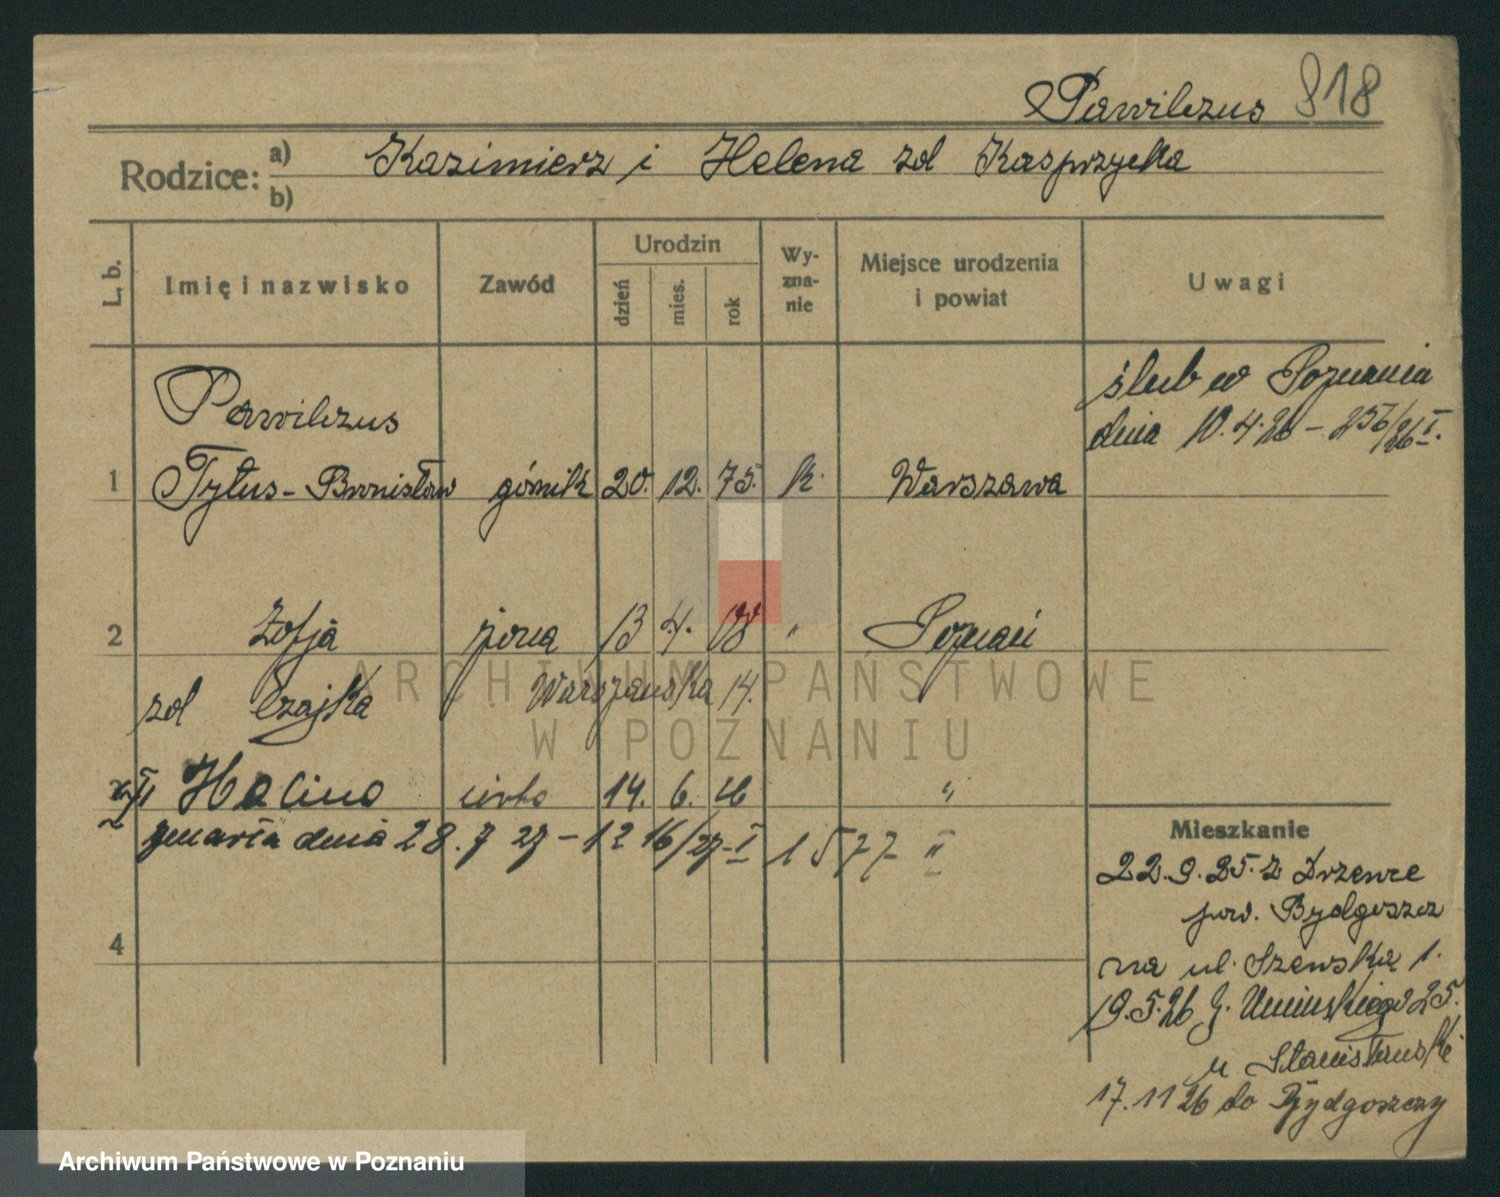 Pawilczus 818
Rodzice: a) Kazimierz i Helena zd Kasprzycka
b)
L. b. Imię i nazwisko Zawód Urodzin dzień mies. rok Wyzna-nie Miejsce urodzenia i powiat Uwagi
ślub w Poznaniu
dnia 10.4.26 - 256/26 I.
Pawilczus
1 Tytus-Bronisław górnik 20. 12. 75. k. Warszawa
2 Zofja żona 13 4. 08 " Poznań
zd Czajka Warszawska 14.
Halina córka 14. 6. 26 "
zmarła dnia 28.7 27 - 1216/27 I 1577 II
4
Mieszkanie
22.9.25. z Drzewce
pow. Bydgoszcz
na ul. Szewską 1.
19.5.26 G. Umińskiego 25.
u Stanisławski
17.11 26 do Bydgoszczy
ARCHIWUM PAŃSTWOWE
W POZNANIU
Archiwum Państwowe w Poznaniu